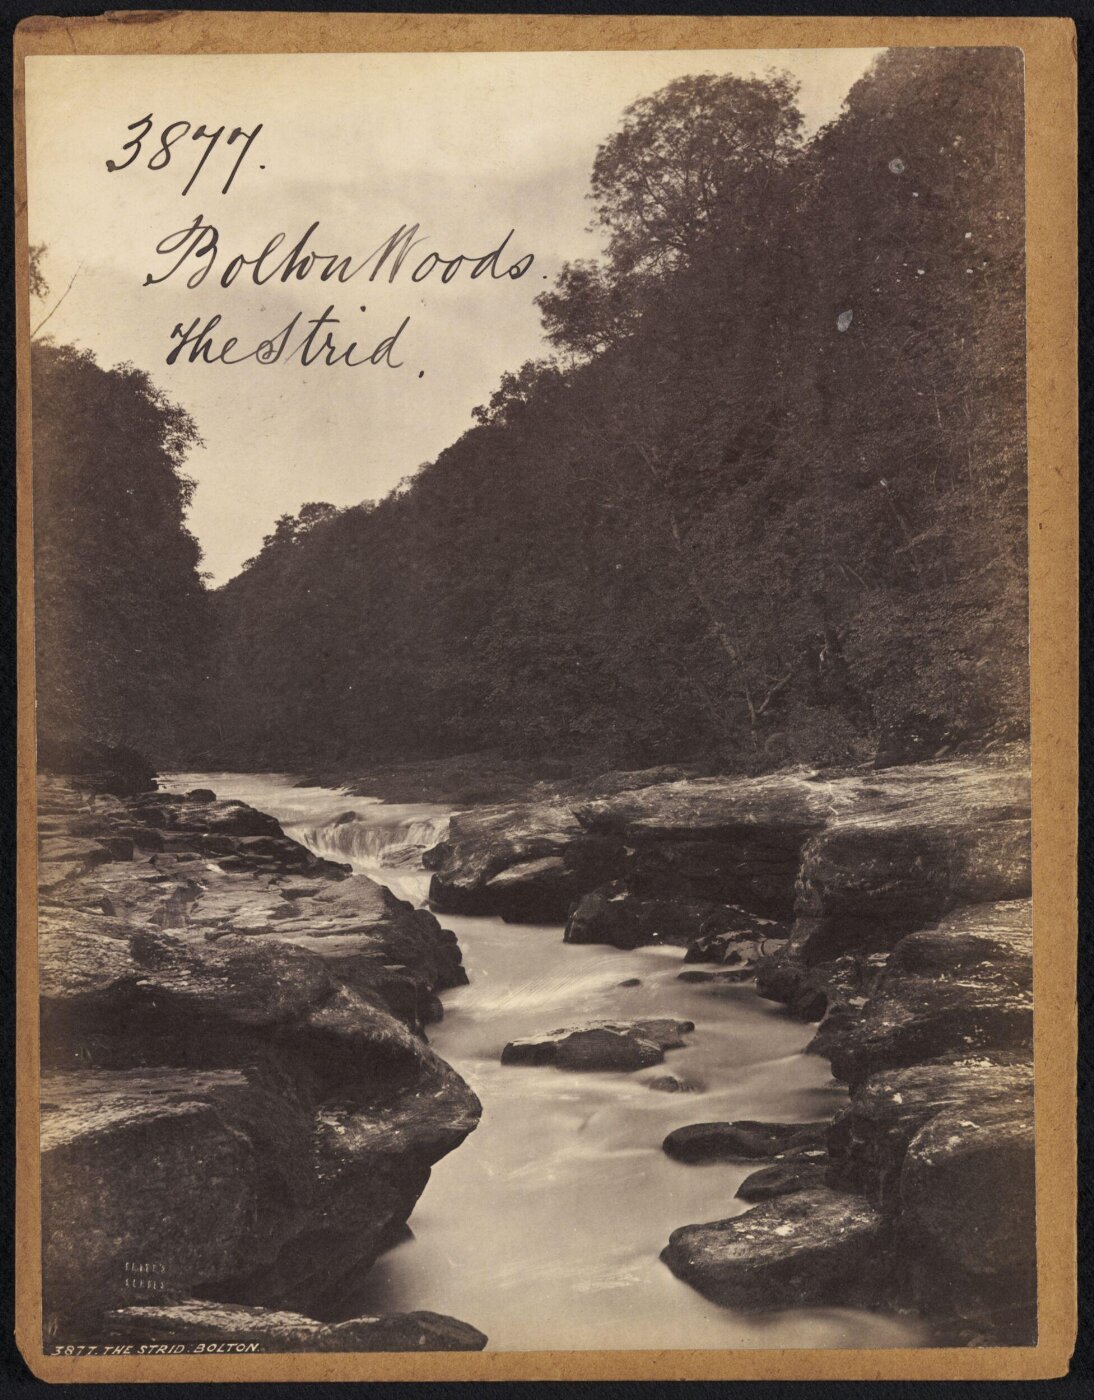 3877.
Bolton Woods.
The Strid.
3877. THE STRID. BOLTON.